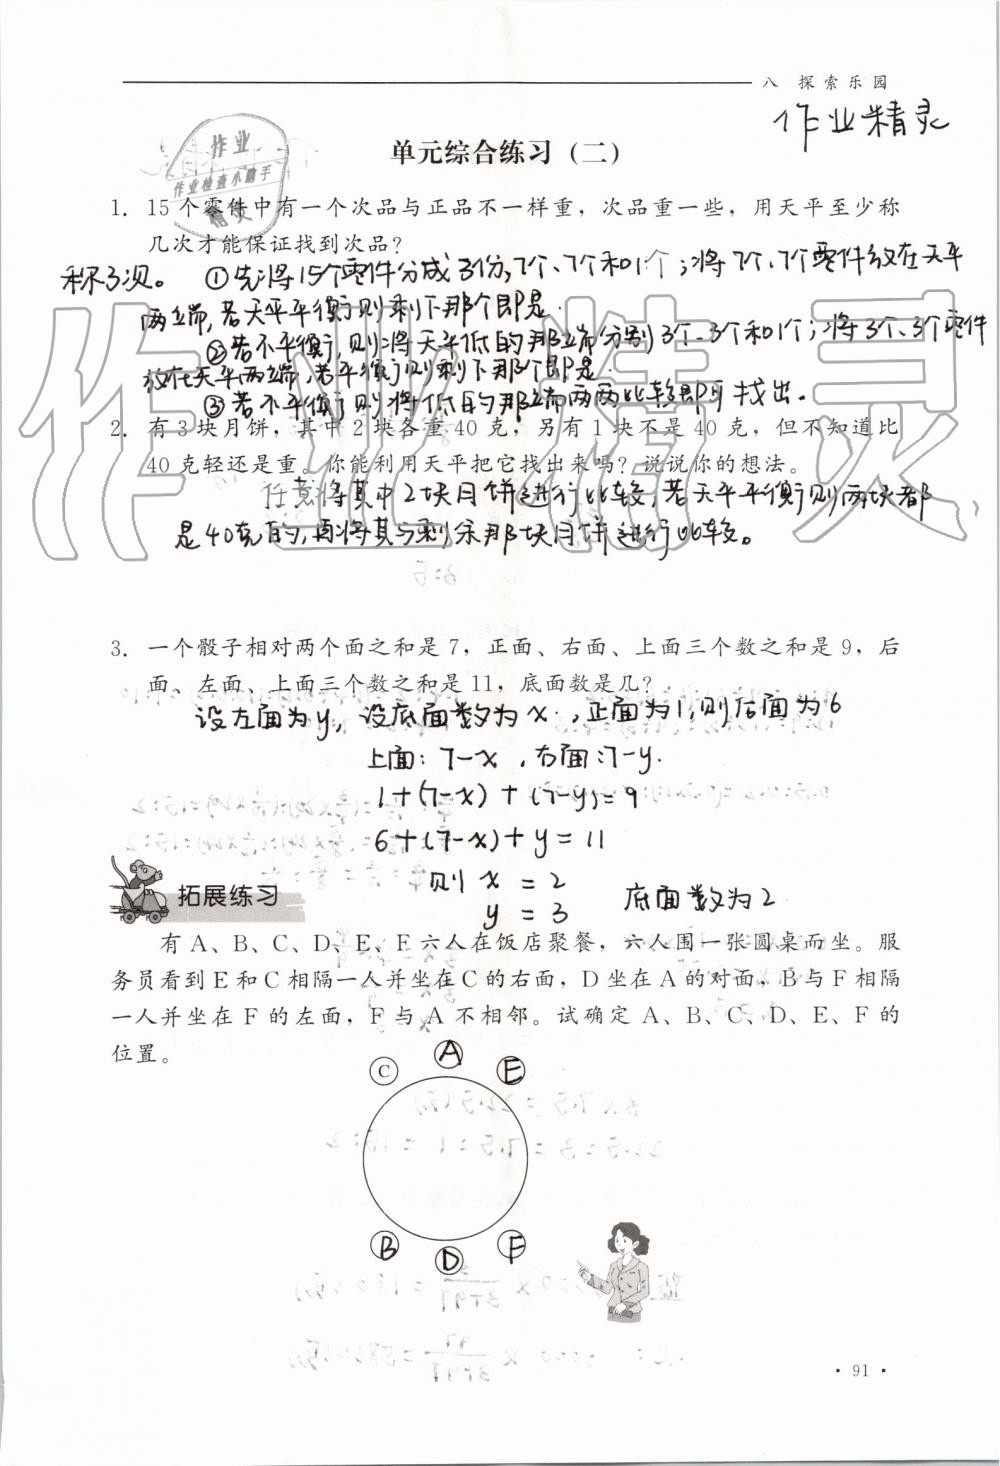 八 探索乐园
作业精灵
作业
作业检查小助手
精灵
单元综合练习(二)
1. 15个零件中有一个次品与正品不一样重,次品重一些,用天平至少称
几次才能保证找到次品?
称3次。 ①先将15个零件分成3份,7个、7个和1个;将7个、7个零件放在天平
两端,若天平平衡则剩下那个即是.
②若不平衡,则将天平低的那端分别3个、3个和1个;将3个、3个零件
放在天平两端,若平衡则剩下那个即是.
③若不平衡则将低的那端两两比较即可找出.
2. 有3块月饼,其中2块各重40克,另有1块不是40克,但不知道比
40克轻还是重。你能利用天平把它找出来吗?说说你的想法。
任意将其中2块月饼进行比较,若天平平衡则两块都
是40克的,再将其与剩余那块月饼进行比较。
3. 一个骰子相对两个面之和是7,正面、右面、上面三个数之和是9,后
面、左面、上面三个数之和是11,底面数是几?
设左面为y,设底面数为x,正面为1,则后面为6
上面:7-x,右面:7-y.
1+(7-x)+(7-y)=9
6+(7-x)+y=11
则 x=2
y=3 底面数为2
拓展练习
有A、B、C、D、E、F六人在饭店聚餐,六人围一张圆桌而坐。服
务员看到E和C相隔一人并坐在C的右面,D坐在A的对面,B与F相隔
一人并坐在F的左面,F与A不相邻。试确定A、B、C、D、E、F的
位置。
A
C E
B F
D
作业精灵
· 91 ·